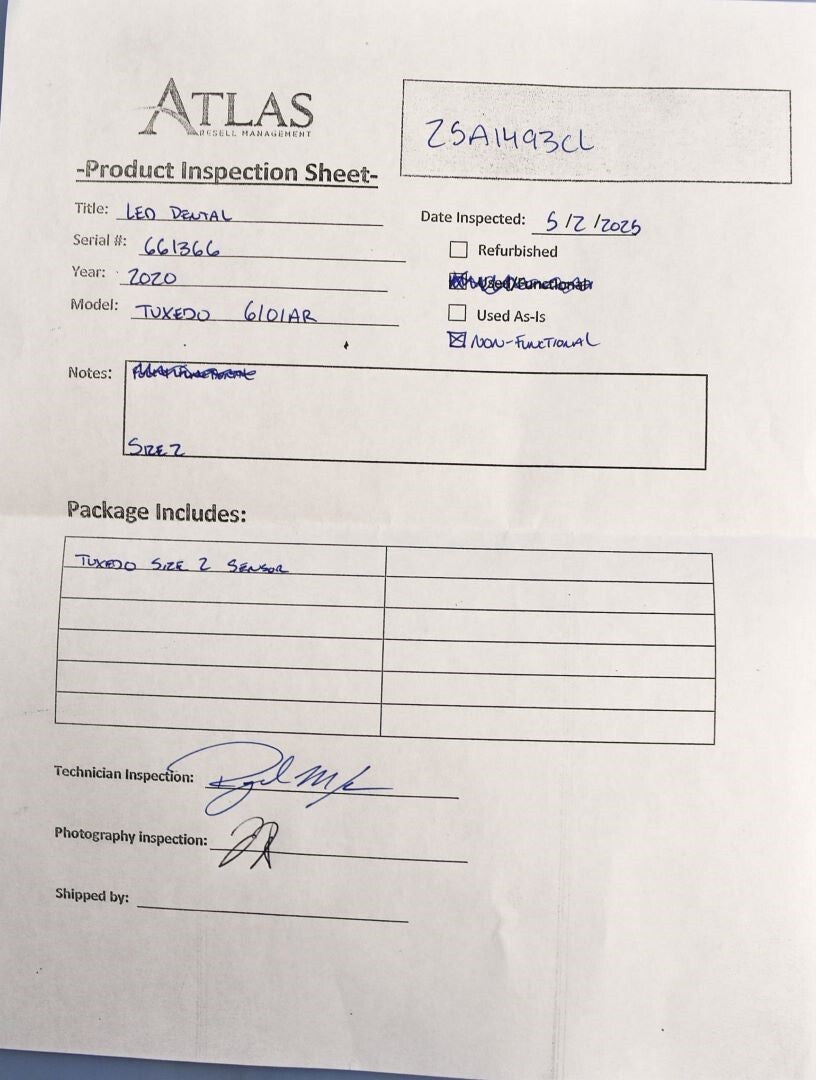 ATLAS
RESELL MANAGEMENT
25A1493CL
-Product Inspection Sheet-
Title: LED DENTAL
Date Inspected: 5/2/2025
Serial #: 661366
Refurbished
Year: 2020
Used/Functional
Model: TUXEDO 6101AR
Used As-Is
NON-FUNCTIONAL
Notes:
SIZE 2
Package Includes:
TUXEDO SIZE 2 SENSOR
Technician Inspection:
Photography inspection:
Shipped by: